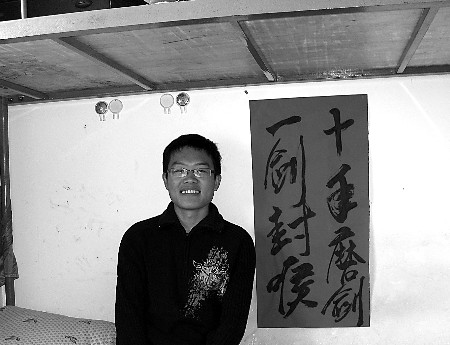 十年磨剑
一剑封侯